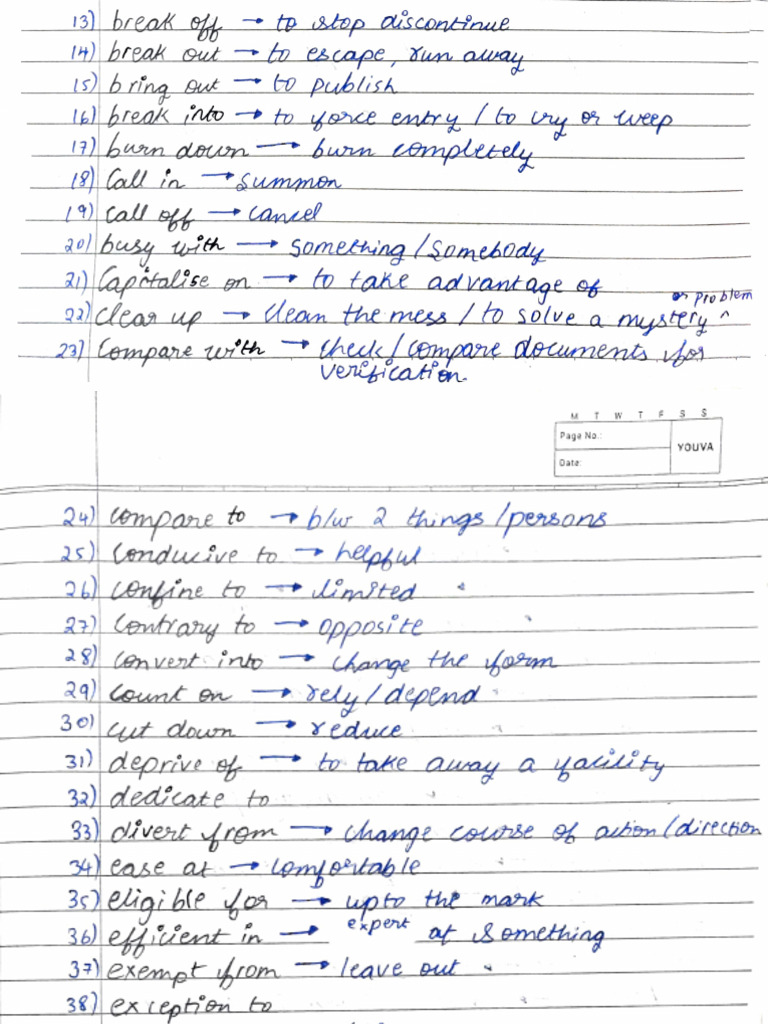 13) break off → to stop discontinue
14) break out → to escape, run away
15) bring out → to publish
16) break into → to force entry / to cry or weep
17) burn down → burn completely
18) Call in → summon
19) call off → cancel
20) busy with → something / somebody
21) Capitalise on → to take advantage of
or problem
22) clear up → clean the mess / to solve a mystery ^
23) Compare with → check / compare documents for
verification
M T W T F S S
Page No.:
YOUVA
Date:
24) compare to → b/w 2 things / persons
25) Conducive to → helpful
26) confine to → limited
27) Contrary to → opposite
28) convert into → change the form
29) count on → rely / depend
30) cut down → reduce
31) deprive of → to take away a facility
32) dedicate to
33) divert from → change course of action / direction
34) ease at → comfortable
35) eligible for → upto the mark
36) efficient in → expert at something
37) exempt from → leave out
38) exception to